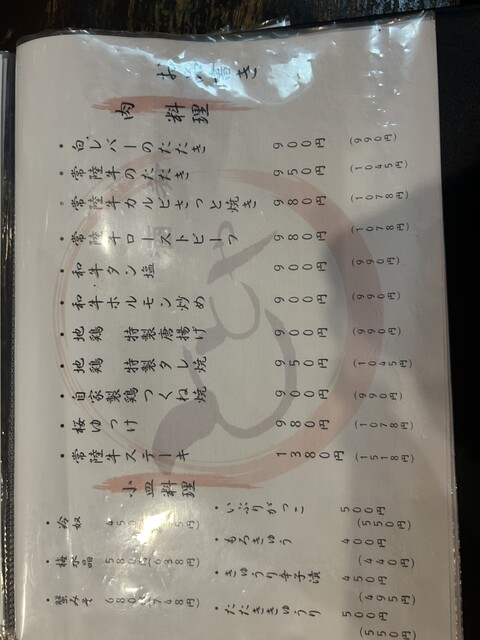 お品書き
肉料理
・白レバーのたたき 900円 (990円)
・常陸牛のたたき 950円 (1045円)
・常陸牛カルビさっと焼き 980円 (1078円)
・常陸牛ローストビーフ 980円 (1078円)
・和牛タン塩 900円 (990円)
・和牛ホルモン炒め 900円 (990円)
・地鶏 特製唐揚げ 900円 (990円)
・地鶏 特製タレ焼 950円 (1045円)
・自家製鶏つくね焼 900円 (990円)
・桜ゆっけ 980円 (1078円)
・常陸牛ステーキ 1380円 (1518円)
小皿料理
・冷奴 450
・梅水晶 580 (638円)
・蟹みそ 680 (748円)
・いぶりがっこ 500円 (550円)
・もろきゅう 400円 (440円)
・きゅうり辛子漬 450円 (495円)
・たたききゅうり 500円 (550円)